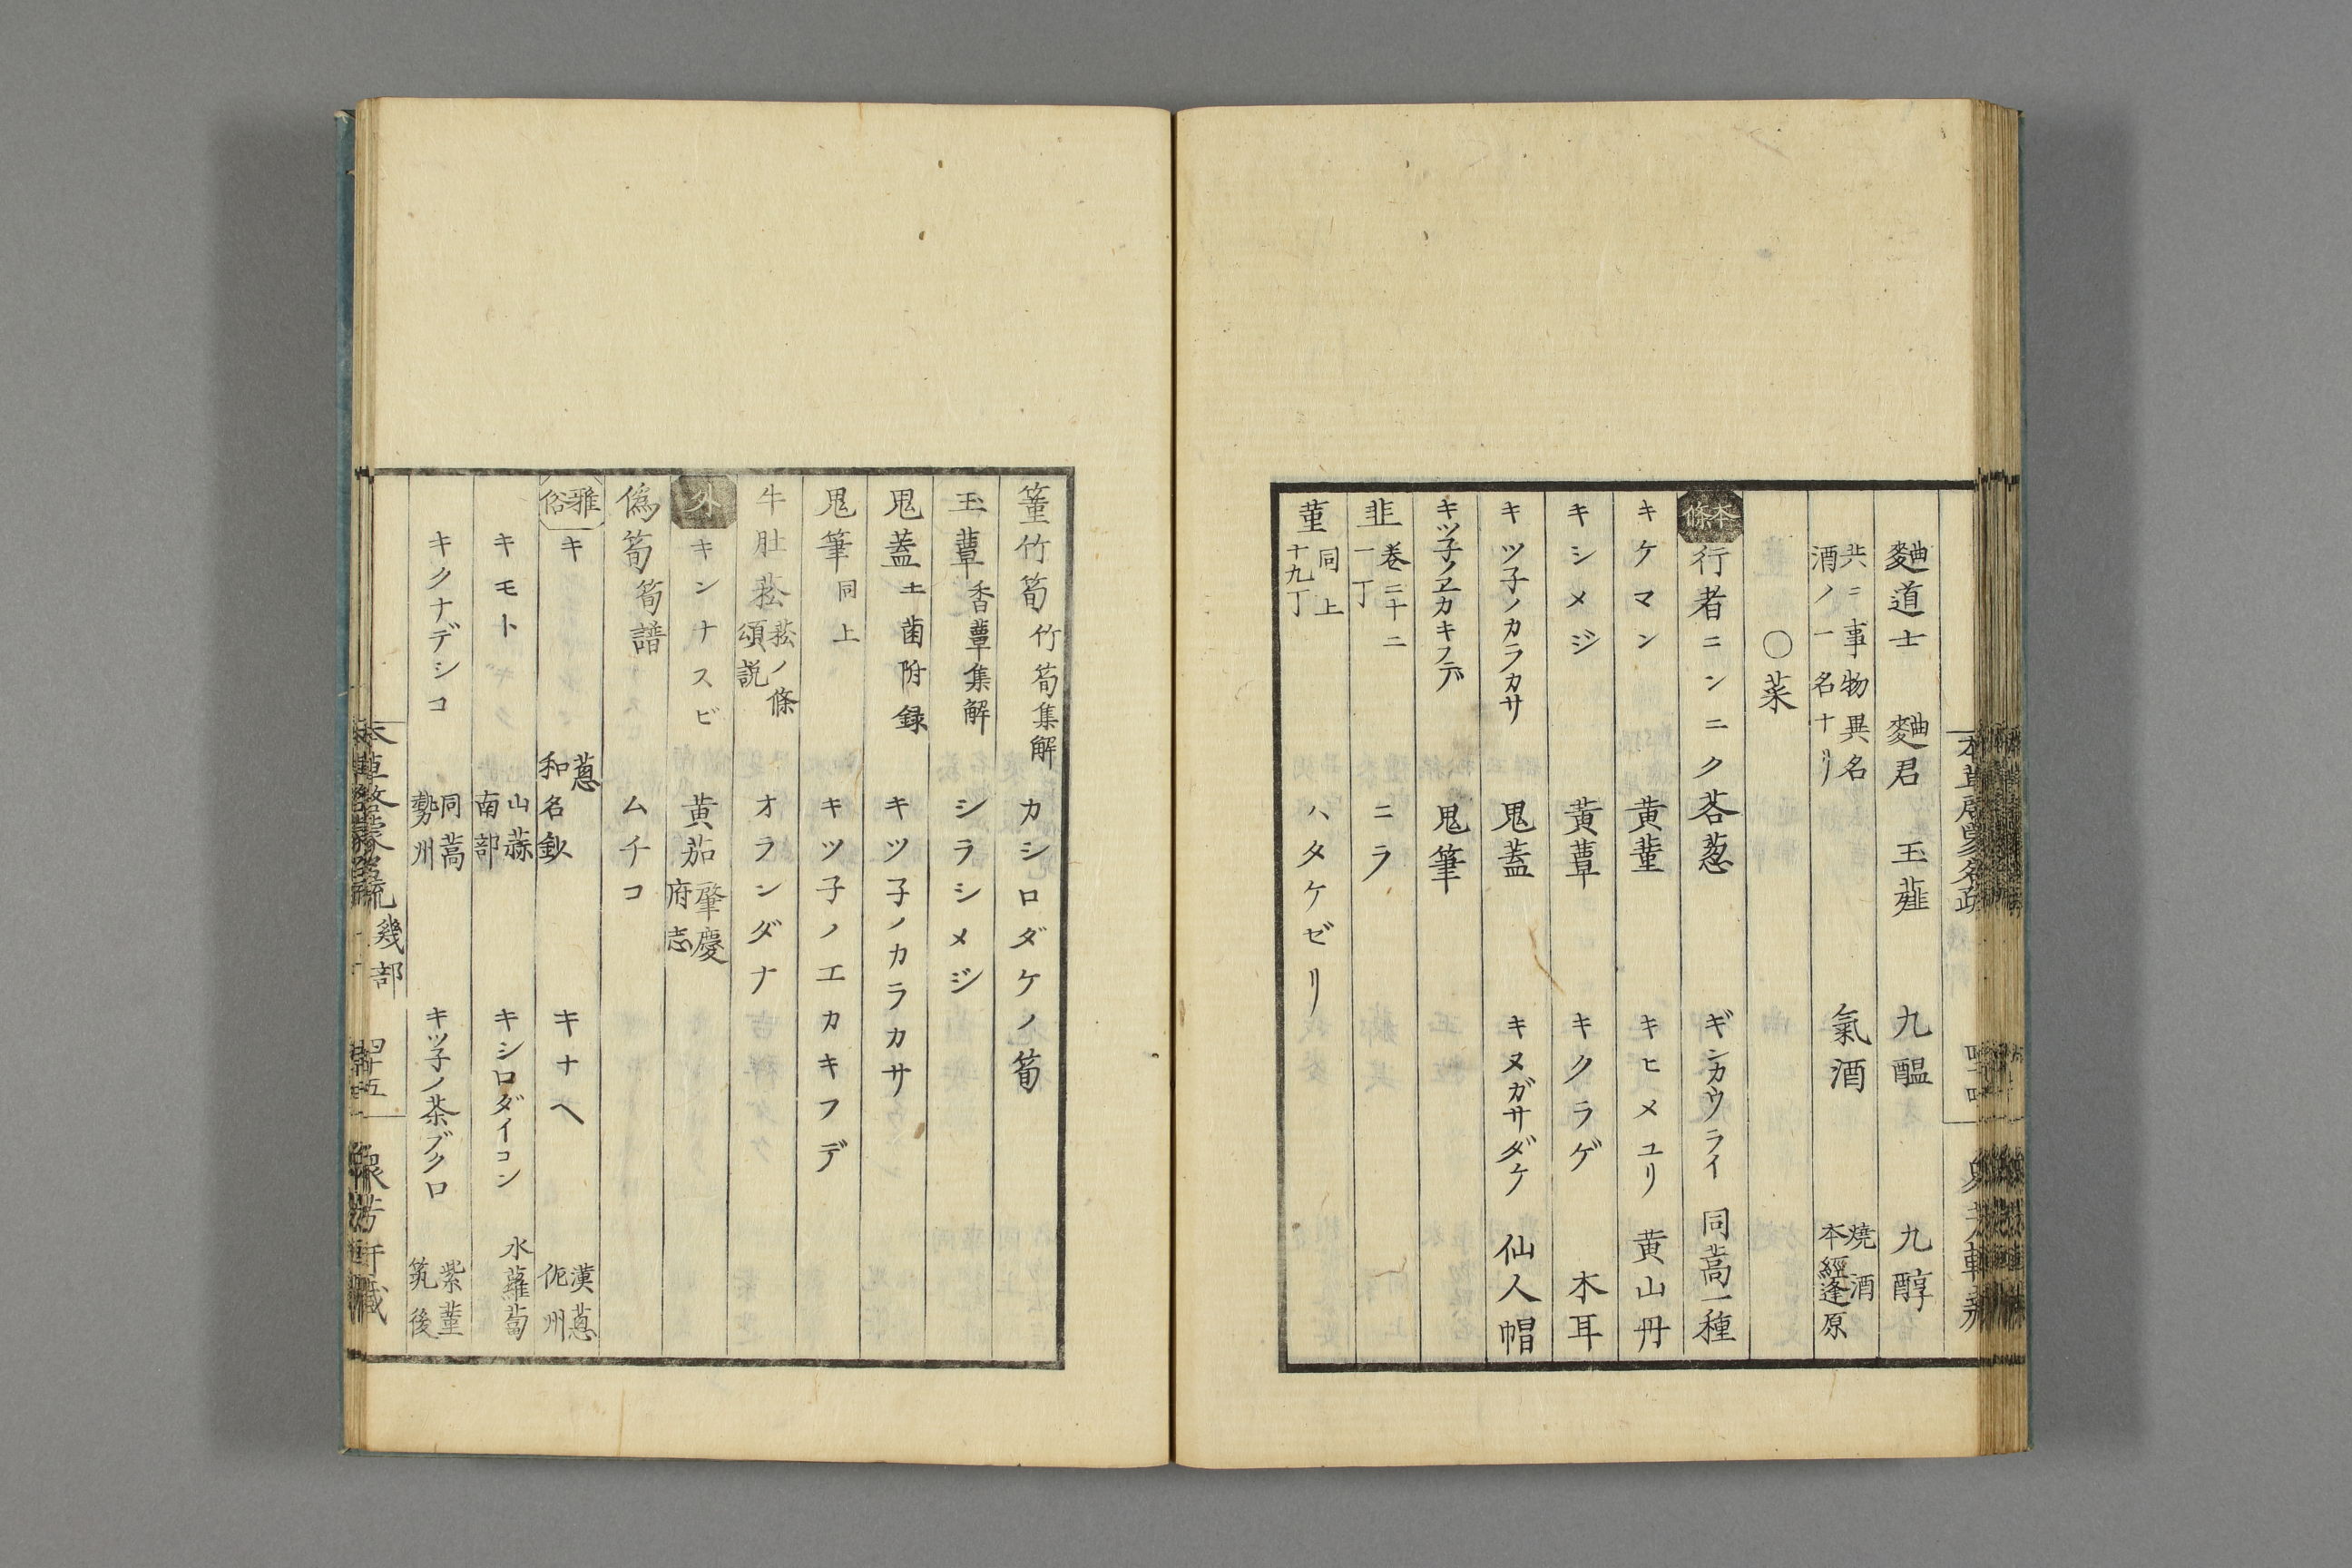 麯道士　麯君　玉薤　九醖　九醇
共ニ事物異名
酒ノ一名ナリ　氣酒　燒酒
本經逢原
○菜
本條　行者ニンニク　茖葱　ギンカウライ　同蒿一種
キケマン　黄菫　キヒメユリ　黄山丹
キシメジ　黄蕈　キクラゲ　木耳
キツ子ノカラカサ　鬼蓋　キヌガサダケ　仙人帽
キツ子ノヱカキフデ　鬼筆
韭　卷二十二
一丁　ニラ
菫　同上
十九丁　ハタケゼリ
篁竹筍　竹筍集解　カシロダケノ筍
玉蕈　香蕈集解　シラシメジ
鬼蓋　土菌附録　キツ子ノカラカサ
鬼筆　同上　キツ子ノエカキフデ
牛肚菘　菘ノ條
頌説　オランダナ
外　キンナスビ　黄茄　肇慶
府志
僞筍　筍譜　ムチコ
雅俗　キ　葱
和名鈔　キナヘ　漢葱
佗州
キモト　山蒜
南部　キシロダイコン　水蘿蔔
キクナデシコ　同蒿
勢州　キツ子ノ茶ブクロ　紫菫
筑後
本草啓蒙名疏　幾部　四十五　衆芳軒藏